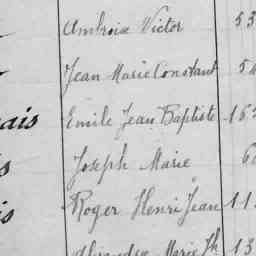 Ambroise Victor 53
Jean Marie Constant
ais Emile Jean Baptiste 16
Joseph Marie
is Roger Henri Jean 11
Marie Th 13